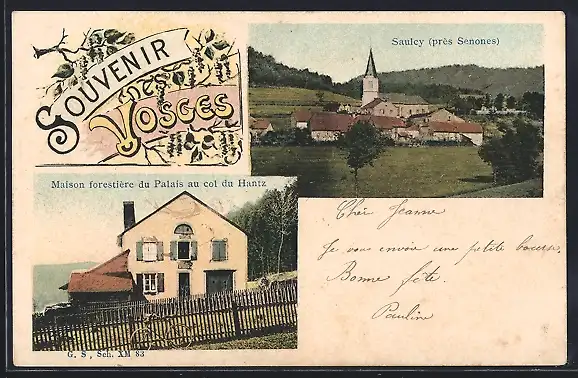 SOUVENIR
des
VOSGES
Saulcy (près Senones)
Maison forestière du Palais au col du Hantz
Chér Jeanne
Je vous envoie une petite
Bonne fête.
Pauline
G. S., Sch. XM 83